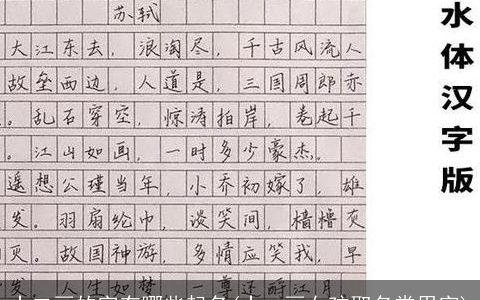 苏轼
大江东去，浪淘尽，千古风流人
故垒西边，人道是，三国周郎赤
。乱石穿空，惊涛拍岸，卷起千
。江山如画，一时多少豪杰。
遥想公瑾当年，小乔初嫁了，雄
发。羽扇纶巾，淡笑间，樯橹灰
灭。故国神游，多情应笑我，早
发。人生如梦，一尊还酹江月
水体汉字版
画的字有哪些起名(画女孩取名常用字)